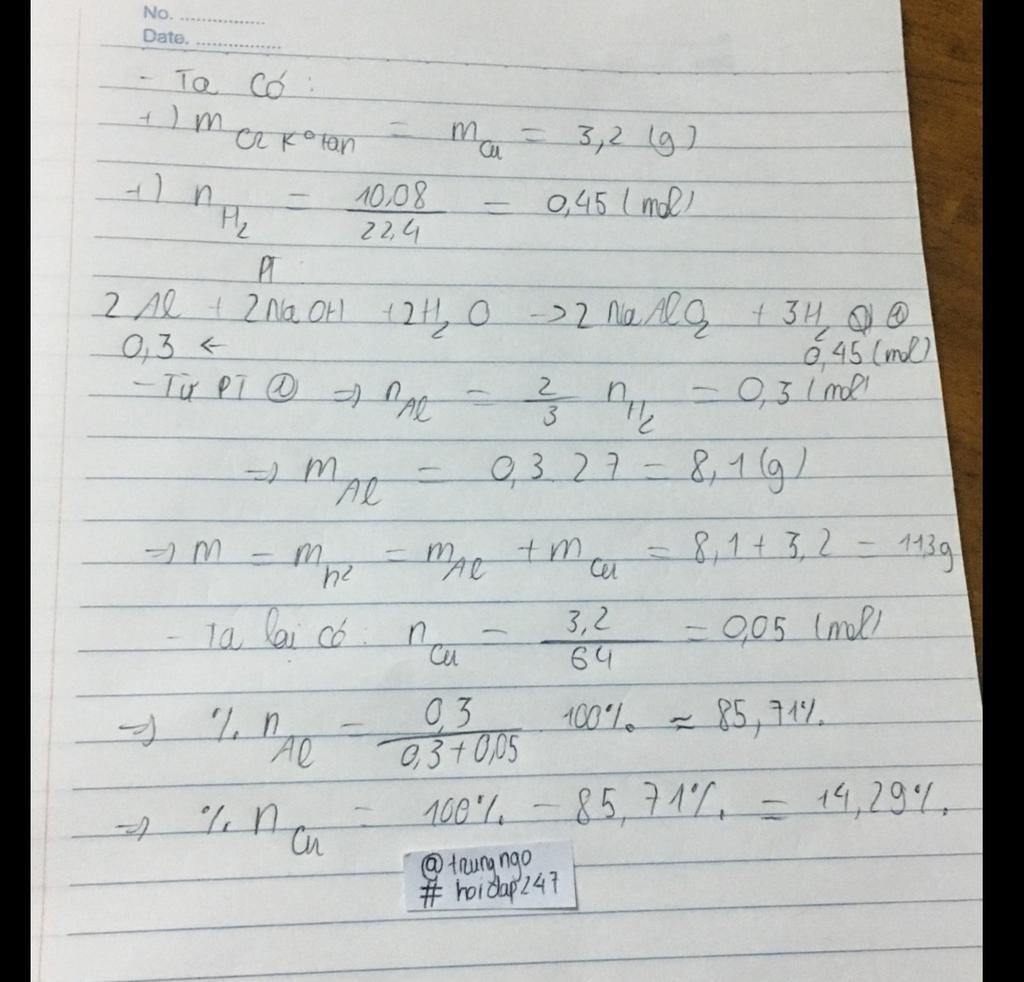 No. ................
Date. ................
- Ta có:
+) m CR K° tan = m Cu = 3,2 (g)
+) n H2 = 10,08 / 22,4 = 0,45 (mol)
PT
2Al + 2NaOH + 2H2O -> 2NaAlO2 + 3H2 ①
0,3 ← 0,45 (mol)
- Từ PT ① => n Al = 2/3 n H2 = 0,3 (mol)
=> m Al = 0,3 . 27 = 8,1 (g)
=> m = m h2 = m Al + m Cu = 8,1 + 3,2 = 11,3g
- Ta lại có: n Cu = 3,2 / 64 = 0,05 (mol)
=> % n Al = 0,3 / 0,3 + 0,05 100% ≈ 85,71%
=> % n Cu = 100% - 85,71% = 14,29%.
@trungngo
# hoidap247